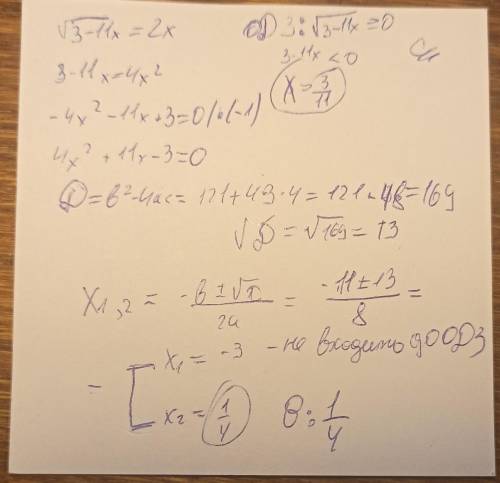 √3-11x = 2x
ОДЗ: √3-11x ≥ 0
3-11x = 4x²
3-11x < 0
x = 3/11
-4x² - 11x + 3 = 0 | · (-1)
4x² + 11x - 3 = 0
D = b² - 4ac = 121 + 4·3·4 = 121 + 48 = 169
√D = √169 = 13
x1,2 = -b ± √D / 2a = -11 ± 13 / 8 =
= [ x1 = -3 - не входить до ОДЗ
x2 = 1/4 В: 1/4